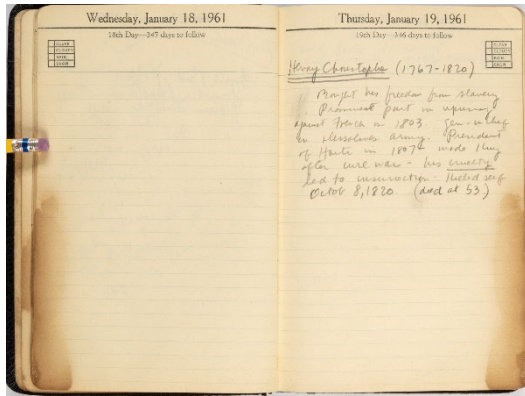 Wednesday, January 18, 1961
18th Day—347 days to follow
Thursday, January 19, 1961
19th Day—346 days to follow
Henry Christophe (1767-1820)
Bought his freedom from slavery
Prominent part in uprising
against French in 1803. Gen-in-chief
in Dessalines army. President
of Haiti in 1807 made King
after civil war - his cruelty
led to insurrection - killed self
October 8, 1820 (died at 53)